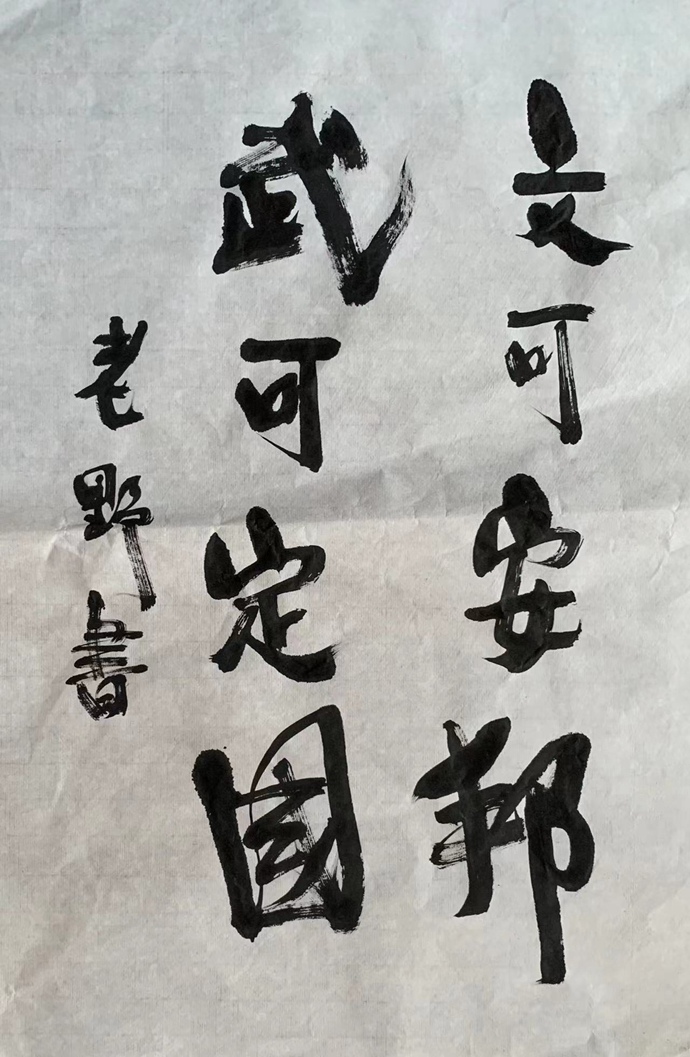 文可安邦
武可定國
老野書